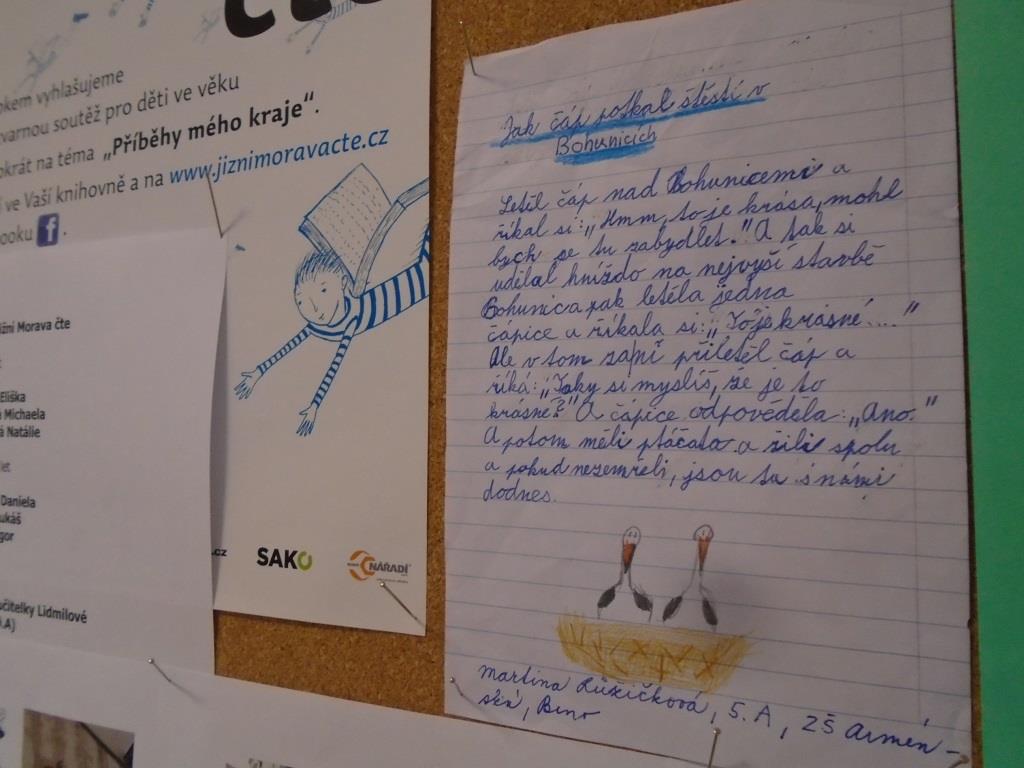 čte
okem vyhlašujeme
tvarnou soutěž pro děti ve věku
okrát na téma „Příběhy mého kraje“.
í ve Vaší knihovně a na www.jiznimoravacte.cz
booku f .
ižní Morava čte
Eliška
Michaela
á Natálie
let
Daniela
ukáš
gor
učitelky Lidmilové
.A)
.cz SAKO NÁŘADÍ
Jak čáp potkal štěstí v
Bohunicích
Letěl čáp nad Bohunicemi a
říkal si: „Hmm, to je krása, mohl
bych se tu zabydlet." A tak si
udělal hnízdo na nejvyší stavbě
Bohunic a pak letěla jedna
čápice a říkala si: „To je krásné...."
Ale v tom zapí přiletěl čáp a
říká: „Taky si myslíš, že je to
krásné?" A čápice odpověděla: „Ano."
A potom měli ptáčata a žili spolu
a pokud nezemřeli, jsou tu s námi
dodnes.
Martina Růžičková, 5. A, ZŠ Armén-
ská, Brno